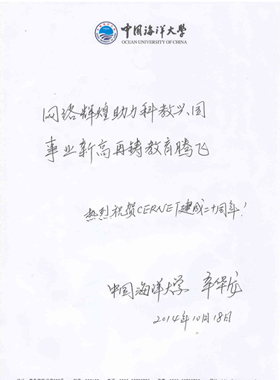 中国海洋大学
OCEAN UNIVERSITY OF CHINA
网络辉煌助力科教兴国
事业新高再铸教育腾飞
热烈祝贺CERNET建成二十周年!
中国海洋大学
2014年10月18日